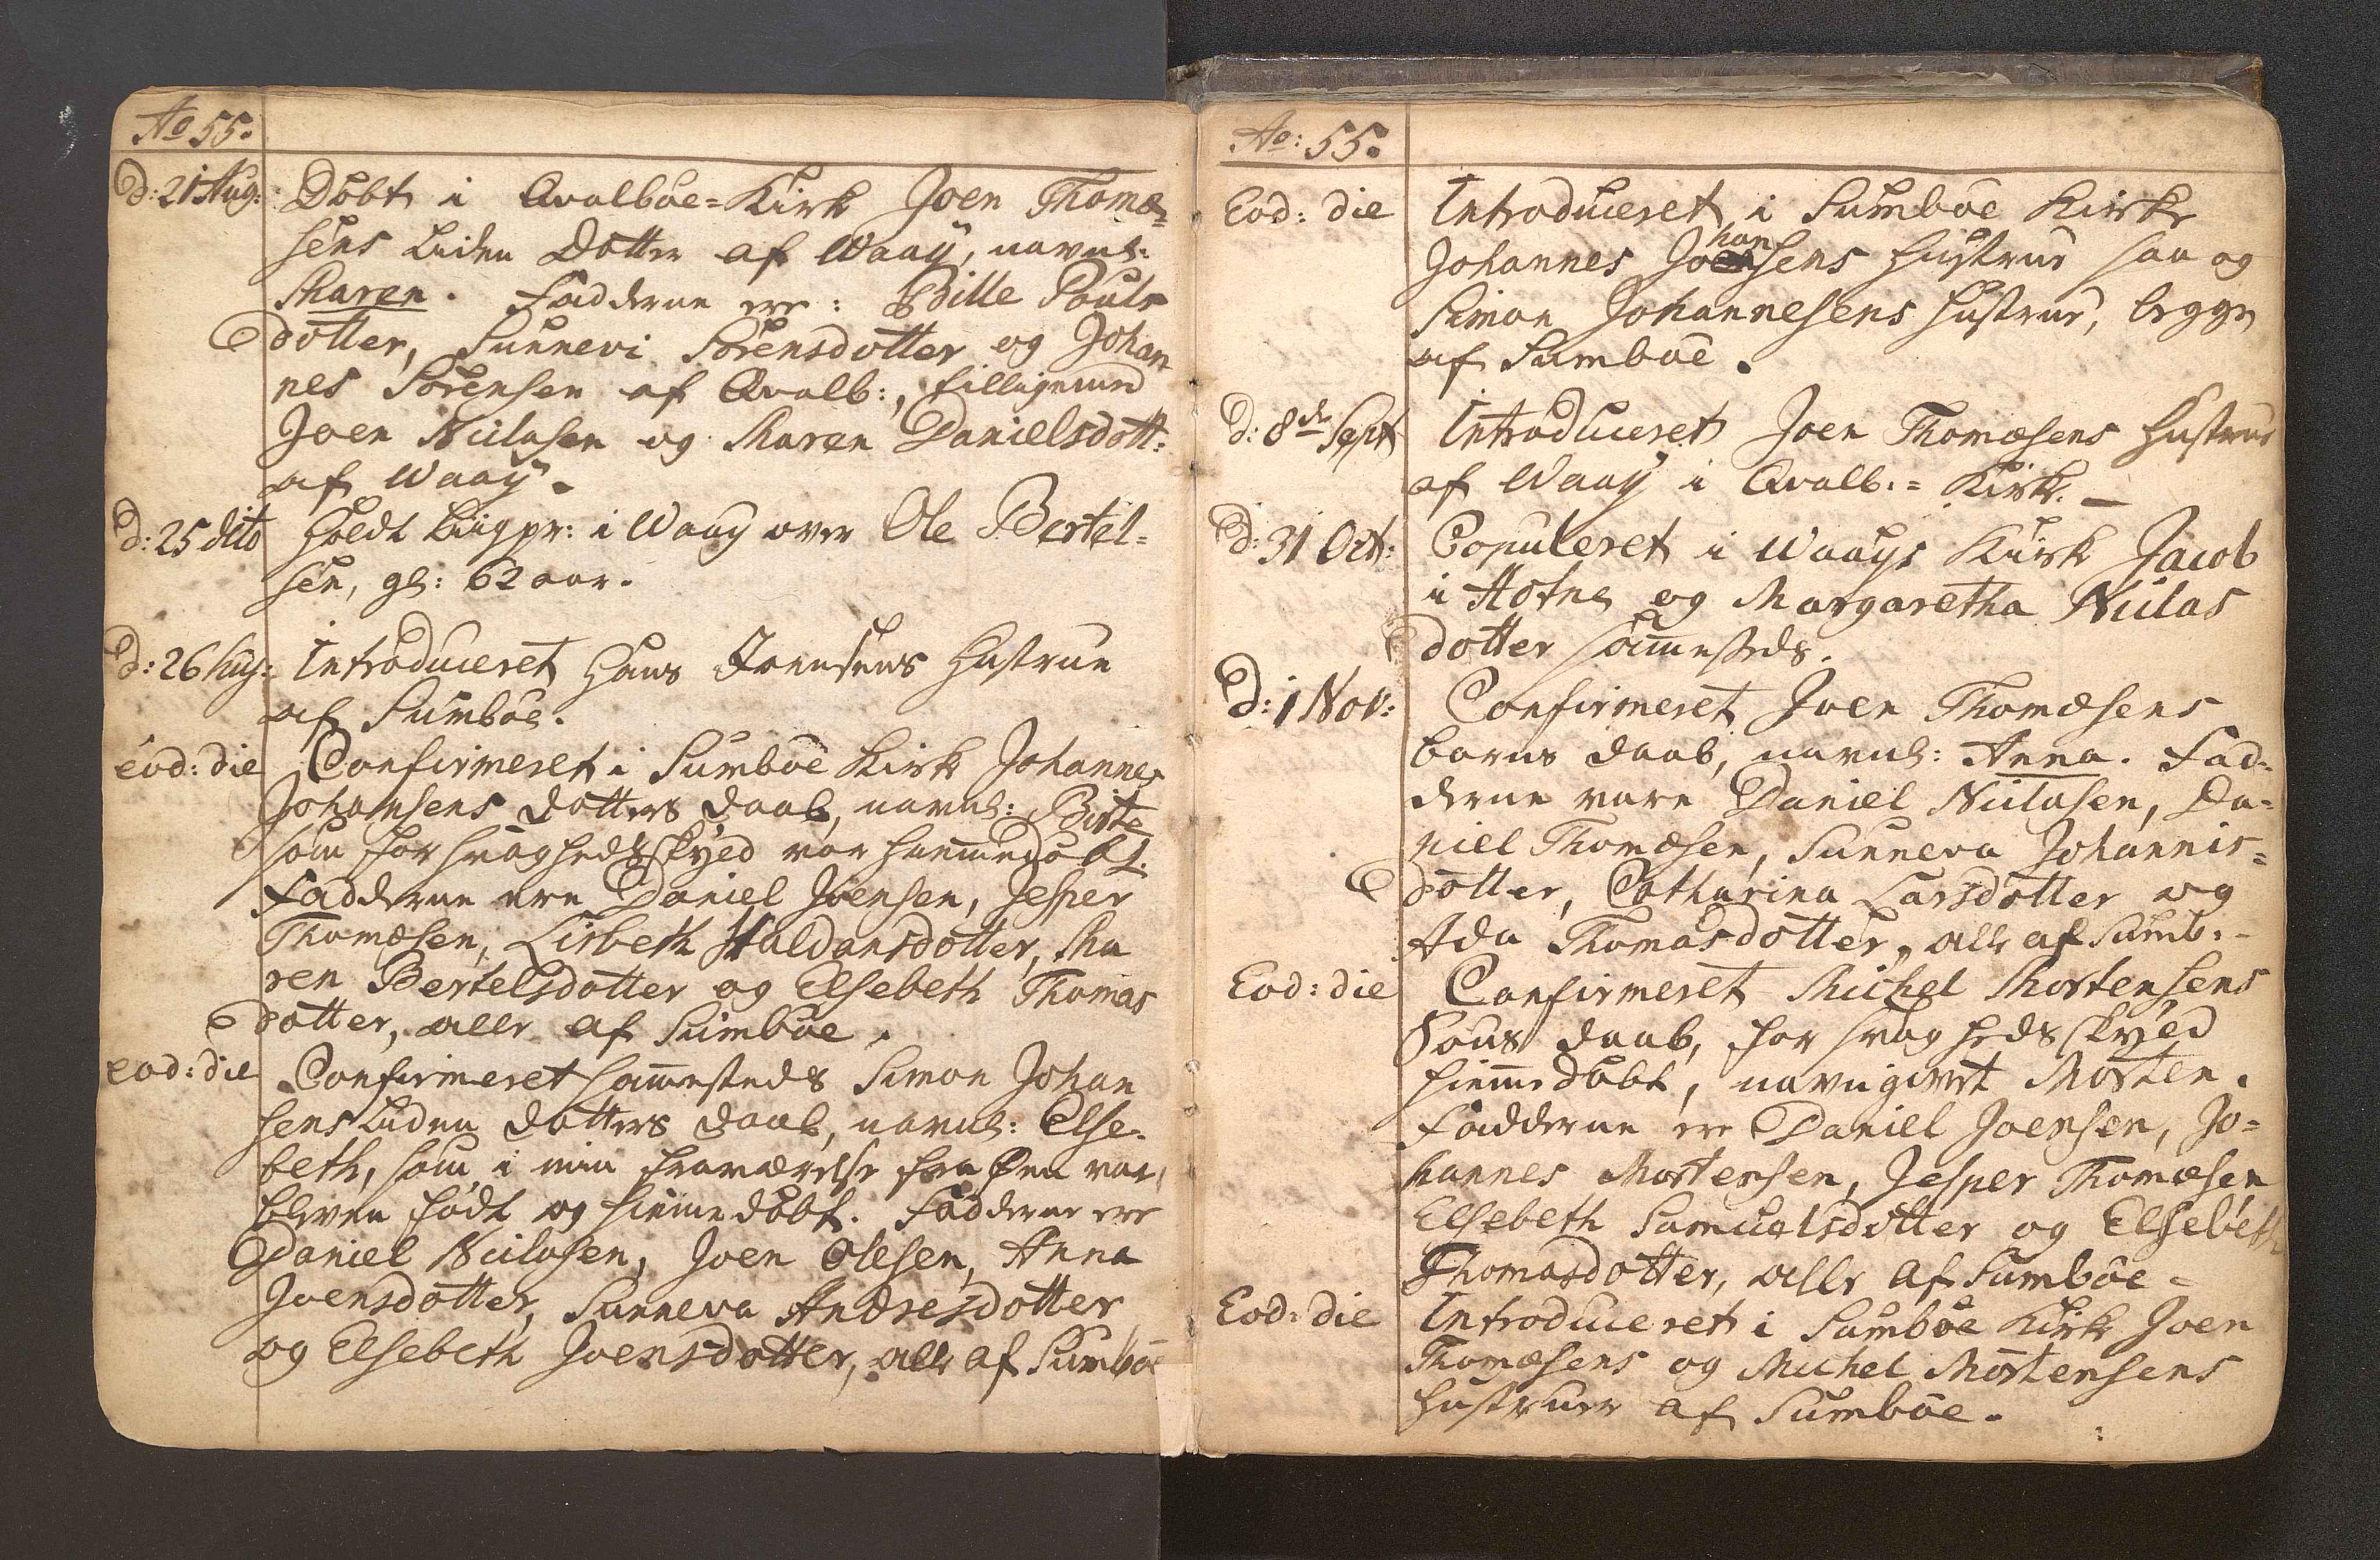 Ao 55.
d: 21 Aug: Döbt i Qvalböe=Kirk Joen Thomæ-
sens liden Dotter af Waaÿ, navnl:
Maren. Fadderne ere: Bille Pouls
dotter, Sunnevi Sörensdotter og Johan
nes Sörensen af Qvalb:, tilligemed
Joen Niclasen og Maren Danielsdott:
af Waaÿ.
d: 25 dito Holdt Liigpr: i Waaÿ over Ole Bertel-
sen, gl: 62 aar.
d: 26 Aug: Introduceret Hans Joensens Hustrue
af Sumböe.
eod: die Confirmeret i Sumböe Kirk Johannes
Johansens Dotters Daab, navnl: Birte
som for svagheds skyed var hiemmedöbt.
Fadderne ere Daniel Joensen, Jesper
Thomæsen, Lisbeth Haldansdotter, Ma
ren Bertelsdotter og Elsebeth Thomas
dotter, alle af Sumböe.
eod: die Confirmeret sammesteds Simon Johan
sens liden Dotters Daab, navnl: Else-
beth, som i min fraværelse fra Öen var
bleven födt og hiemmedöbt. Fadderne ere
Daniel Niclasen, Joen Olesen, Anna
Joensdotter, Sunneva Andresdotter
og Elsebeth Joensdotter, alle af Sumböe
Ao: 55.
Eod: die Introduceret i Sumböe Kirke
Johannes Johansens Hustrue saa og
Simon Johannesens Hustrue, begge
af Sumböe.
d: 8de Sept Introduceret Joen Thomæsens Hustrue
af Waaÿ i Qvalb.= Kirk.
d: 31 Oct: Copuleret i Waays Kirk Jacob
i Hofne og Margaretha Niclas
dotter sammesteds.
d: 1 Nov: Confirmeret Joen Thomæsens
barns Daab, navnl: Anna. Fad-
derne vare Daniel Niclasen, Da-
niel Thomæsen, Sunneva Johannis-
dotter, Catharina Larsdotter og
Ada Thomasdotter, alle af Sumb:
Eod: die Confirmeret Michel Mortensens
Söns Daab, for svagheds skyed
hiemmedöbt, navngivet Morten.
Fadderne ere Daniel Joensen, Jo-
hannes Mortensen, Jesper Thomæsen
Elsebeth Samuelsdotter og Elsebeth
Thomasdotter, alle af Sumböe-
Eod: die Introduceret i Sumböe Kirk Joen
Thomæsens og Michel Mortensens
Hustruer af Sumböe.